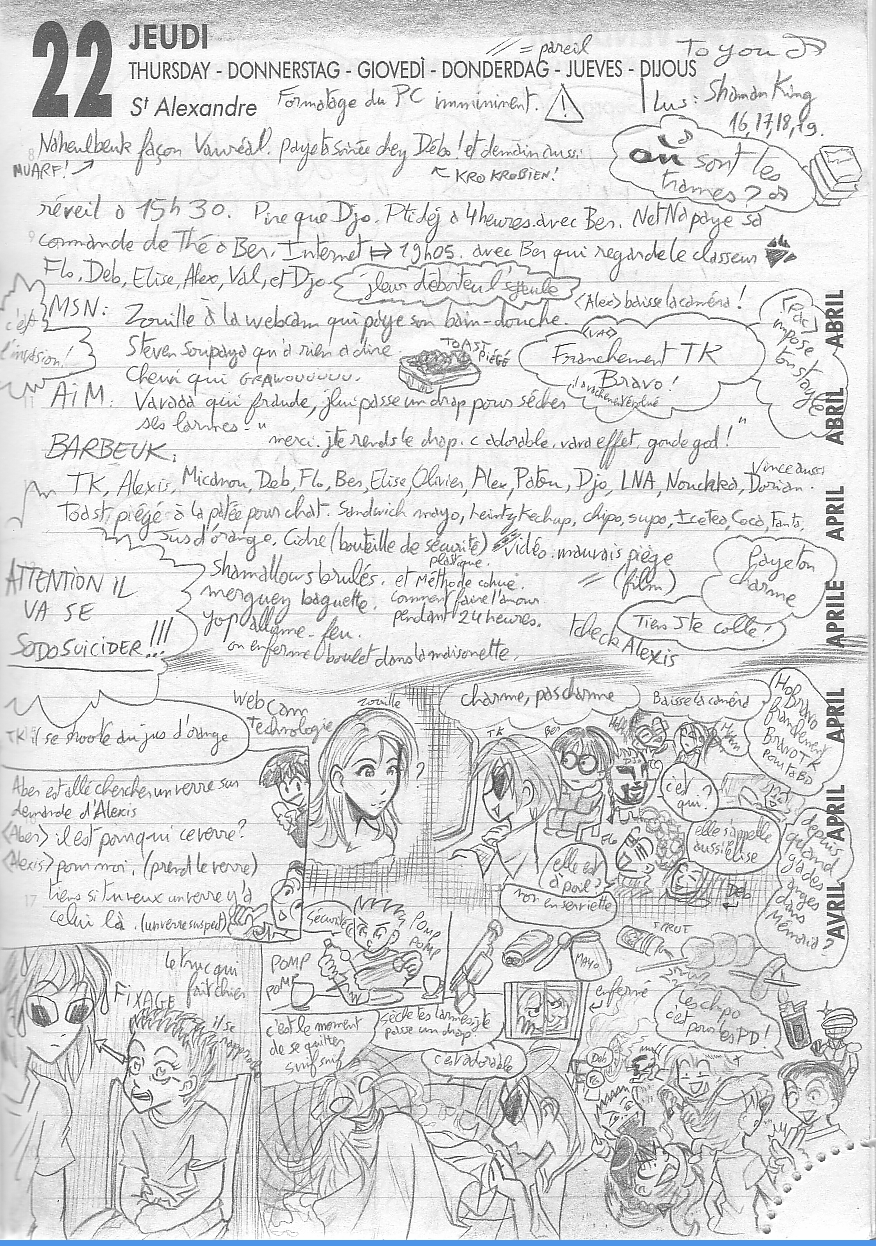 22 JEUDI
// = pareil
To you
THURSDAY - DONNERSTAG - GIOVEDÌ - DONDERDAG - JUEVES - DIJOUS
St Alexandre
Formatage du PC imminiment.
Lus: Shaman King
16,17,18,19.
Naheulbeuk façon Vauréal. paye ta soirée chez Débo! et demain aussi
MUARF!
KRO KROBIEN!
où sont les
trames?
réveil à 15h30. Pire que Djo. Ptidéj à 4heures avec Ber. NetNapaye sa
commande de Thé à Ber. Internet 19h05. avec Ber qui regarde le classeur
Flo, Deb, Elise, Alex, Val, et Djo.
<Alex> baisse la caméra!
c'est
l'invasion!
MSN: Zouille à la webcam qui paye son bain-douche.
Steven Soupaya qu'a rien à dire
TOAST
PIÉGÉ
Franchement TK
Bravo!
AiM: Varada qui fraude, jlui passe un drap pour sécher
ses larmes. "merci. jte rends le drap. c adorable. vara effet, gode god!"
BARBEUK:
TK, Alexis, Micanou, Deb, Flo, Ber, Elise, Olivier, Alex, Patou, Djo, LNA, Nouchka, Dorian.
Vince aussi
Toast piégé à la patée pour chat. Sandwich mayo, heintz ketchup, chipo, supo, Icetea, Coca, Fanta,
Jus d'orange, Cidre (bouteille de sécurité)
plastique.
vidéo: mauvais piège
// (film)
Shamallows brulés.
et méthode cohue.
merguez baguette.
comment faire l'amour
pendant 24 heures.
yop allume-feu.
on enferme boulet dans la maisonette.
Paye ton
charme
Tiens J'te colle!
tcheck Alexis
ATTENTION IL
VA SE
SODOSUICIDER!!!
TK: il se shoote au jus d'orange
webcam
technologie
Zouille
?
charme, pas charme
Baisse la caméra
Ho Bravo
franchement
Bravo TK
pour ta BD
TK
Ber
Djo
Flo
Deb
c'est
qui?
elle s'appelle
aussi Elise
elle est
à poil?
non en serviette
depuis
quand
ya des
anges
dans
Aber est allé chercher un verre sur
demande d'Alexis
<Aber> il est pour qui ce verre?
<Alexis> pour moi. (prend le verre)
tiens si tu veux un verre y'a
celui là. (un verre suspect)
le truc qui
fait chier
FIXAGE
il se
rapproche
Sécurité
POMP
POMP
POMP
POMP
POMP
MAYO
PROUT
enfermé
Les chipo
c'est pour les PD!
c'est le moment
de se quitter
snif snif
Sèche tes larmes, j'te
passe un drap.
c'est adorable
ABRIL
ABRIL
APRIL
APRILE
APRIL
APRIL
AVRIL